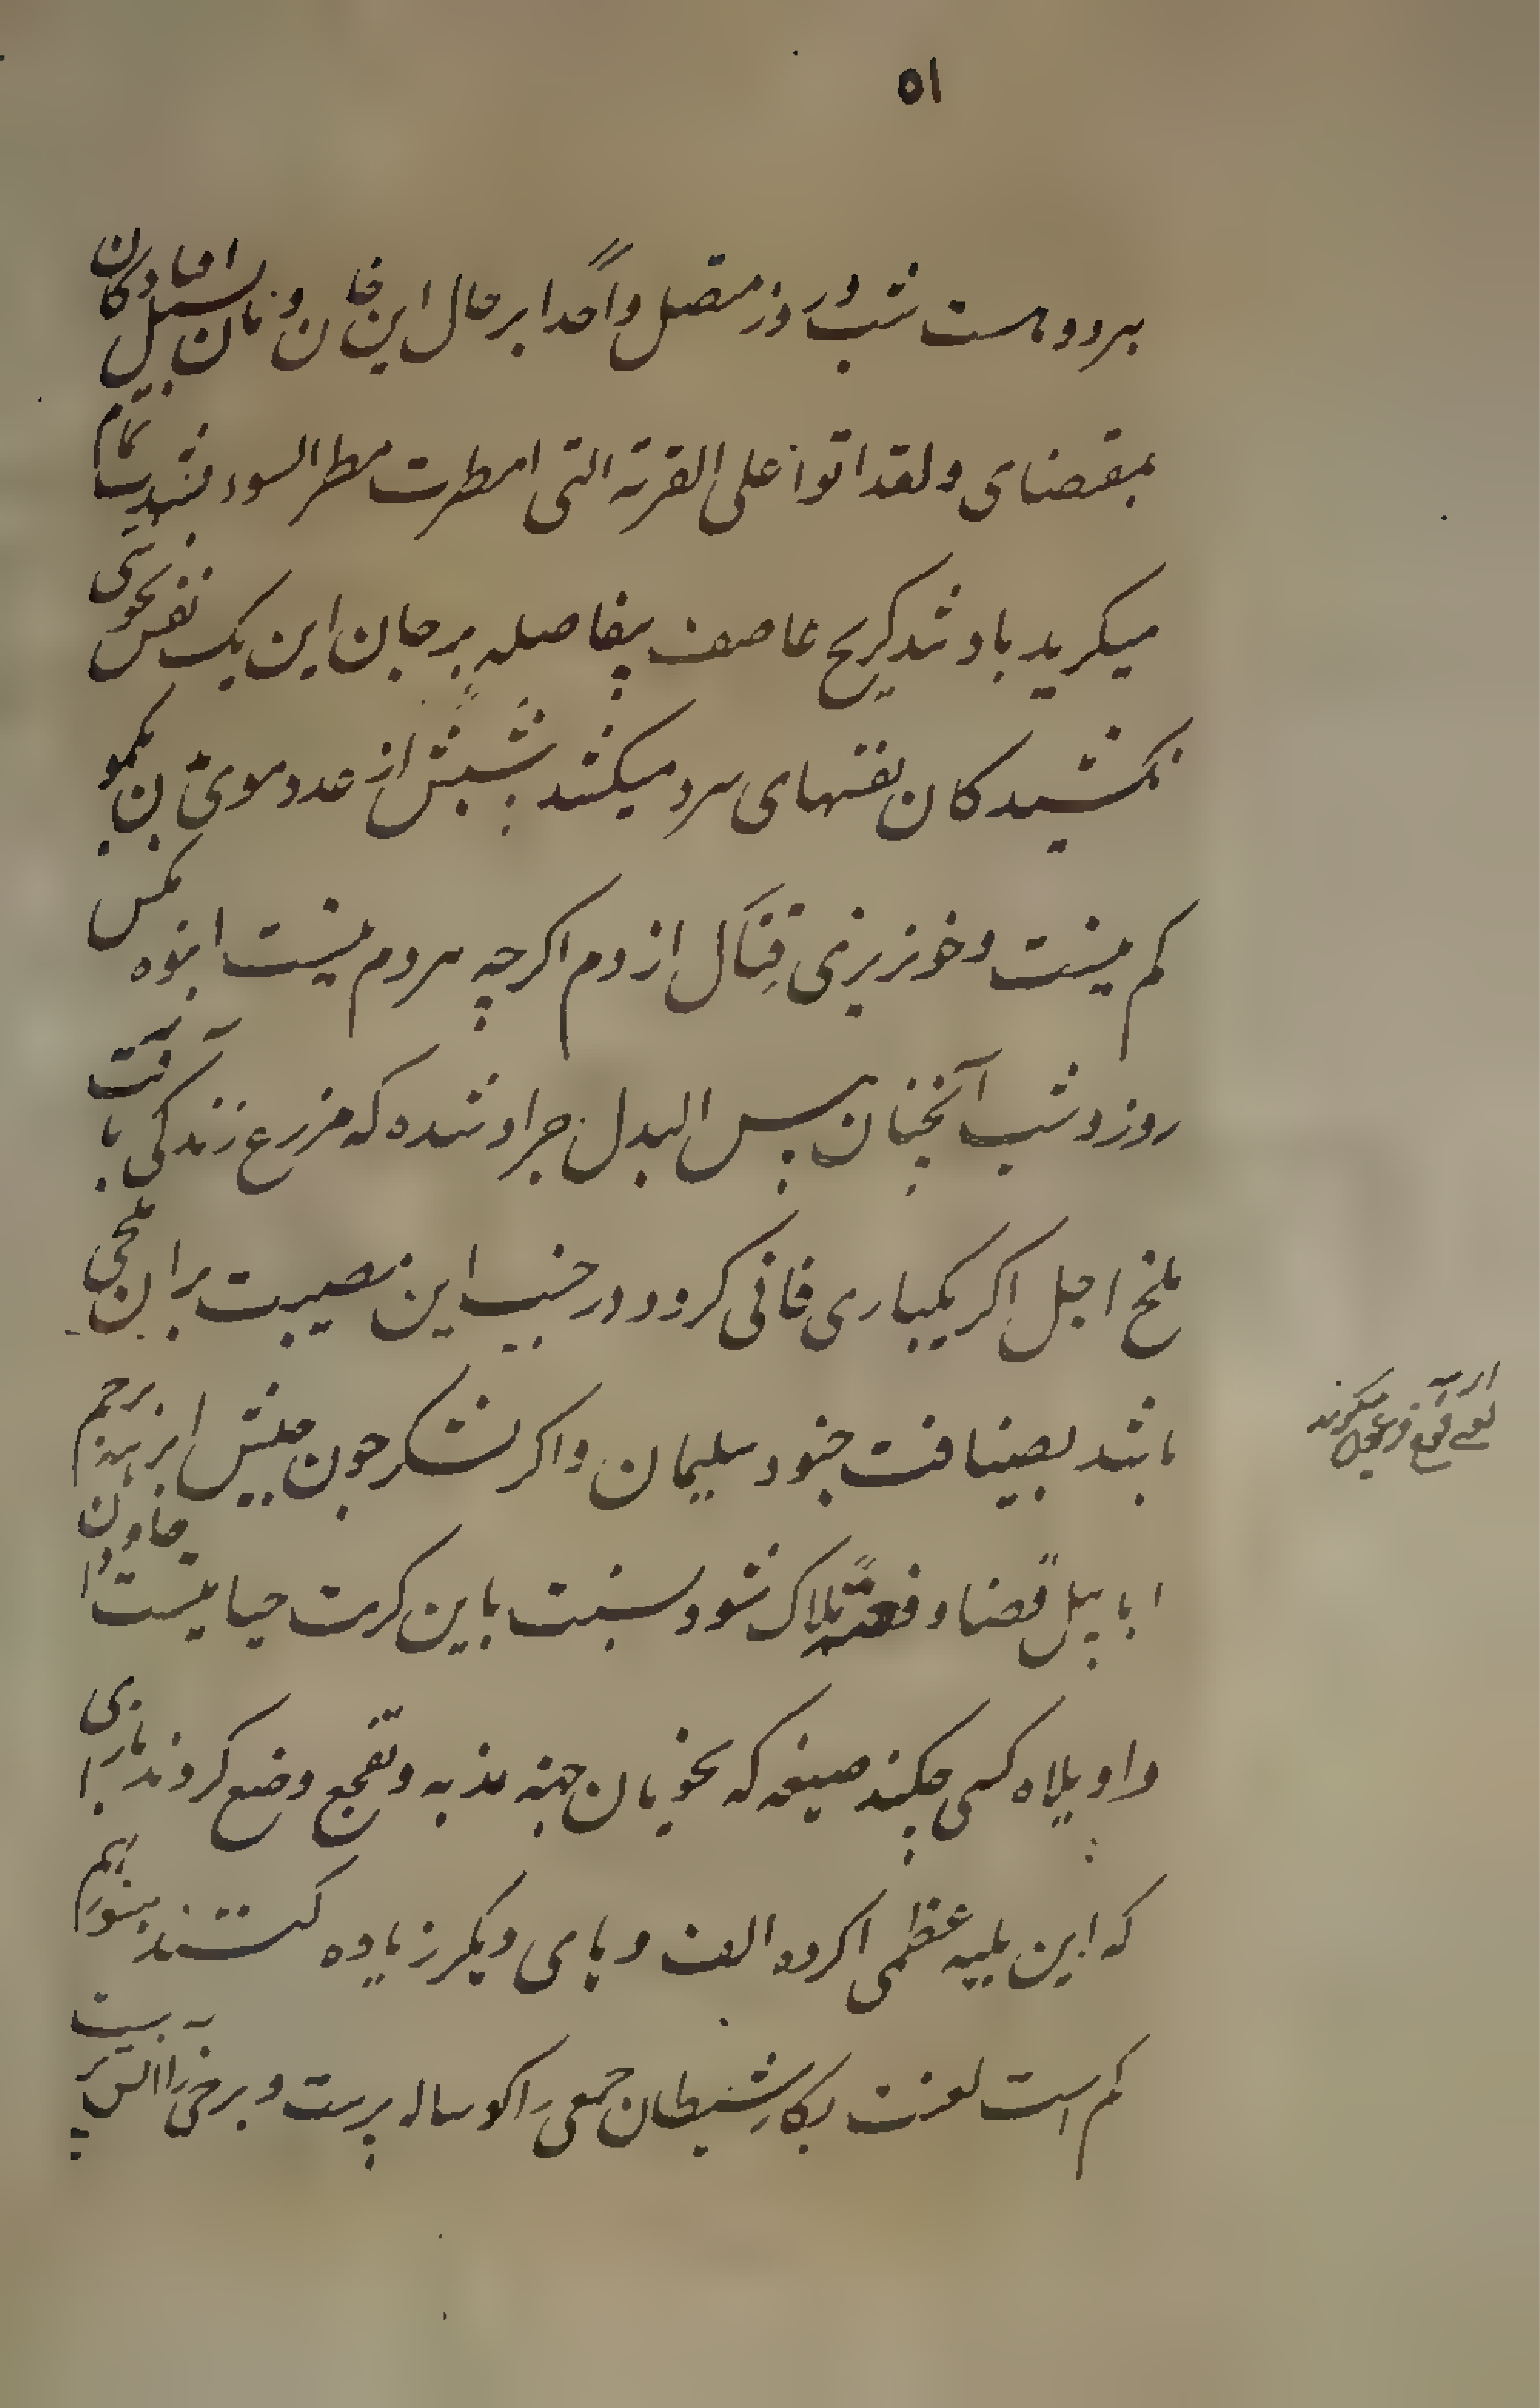 ۵۱
بهر دو دست شب و روز متصل واحدا بر حال این خان و مان بسیل افتادکان
بمقتضای ولقد اتوا علی القریة التی امطرت مطر السوء بشدت تمام
میکرید باد شد کریح عاصف بیفاصله بر جان این یک نفس بخوشی
نکشیدکان نفسهای سرد میکشد شپشش از عدد موی بدن یکمو
کم نیست و خونریزی قتال از دم اکرچه مردم نیست انبوه مکس
روز و شب آنچنان بئس البدل جراد شده که مزرع زندکی بآفت
ملخ اجل اکر یکباری فانی کردد در جنب این مصیبت بران ملخی
باشد بضیافت جنود سلیمان و اکر لشکر جون حبش ابرهه برجم
ابابیل قضا دفعةً هلاک شود نسبت باین کربت حیاتیست جاودان
واویلاه کسی چکند صیغه که نحویان جهة ندبه و تفجع وضع کردند برای
که این بلیه عظمی اکر دو الف و یای دیکر زیاده کنند هنوز هم
کم است لعنت بکار شیطان جمعی را کوساله پرست و برخی را